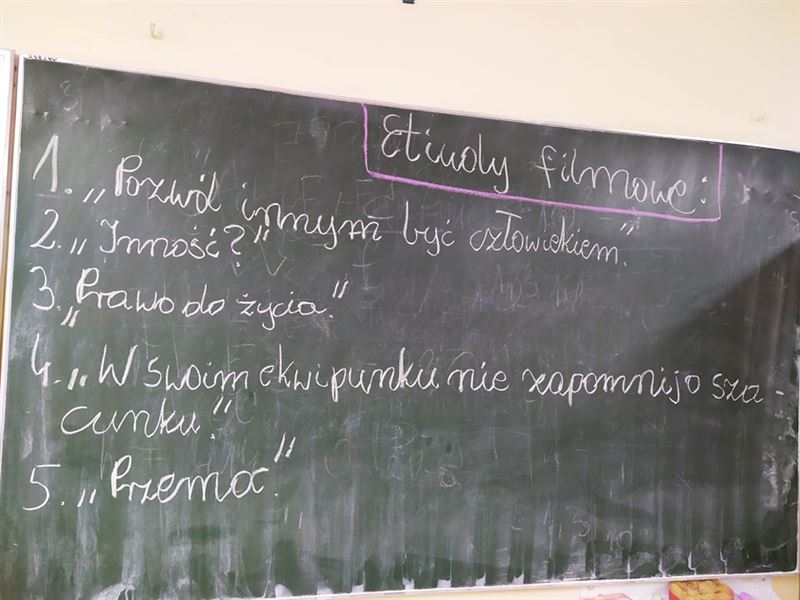 Etiudy filmowe:
1. „Pozwól innym być człowiekiem."
2. „Inność?"
3. „Prawo do życia."
4. „W swoim ekwipunku nie zapomnij o sza-
cunku."
5. „Przemoc."